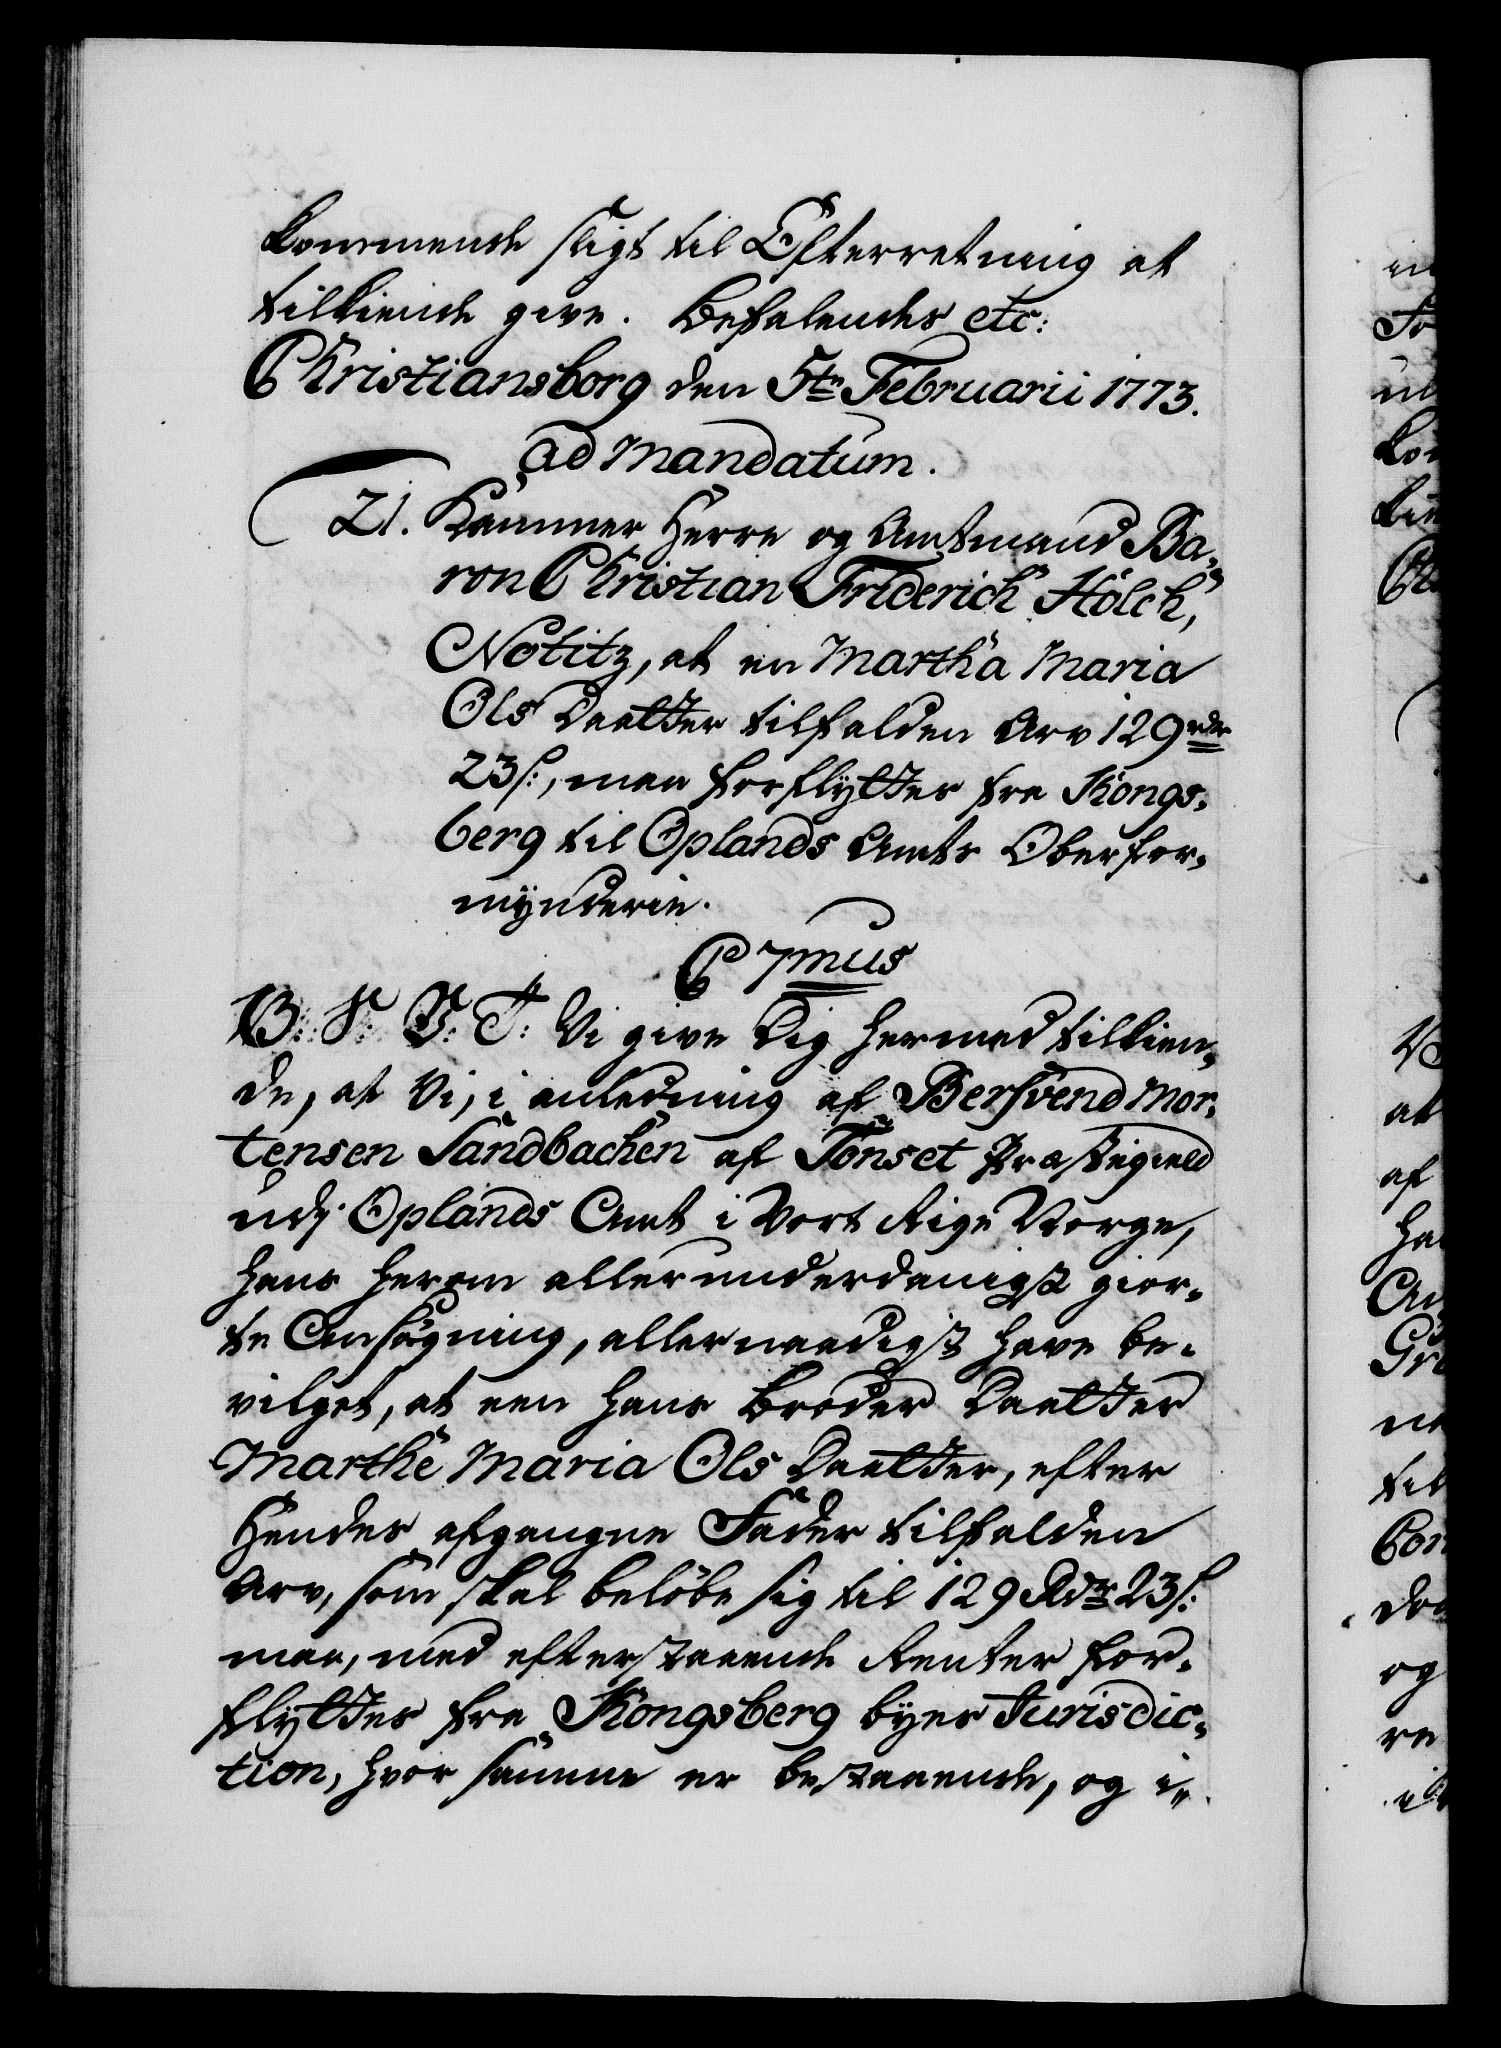 kommende sligt til Efterretning at
tilkiende give. Befalendes etc:
Christiansborg den 5te Februarii 1773.
ad Mandatum.
21. Kammer Herre og Amtmand Ba-
ron Christian Friderich Holck,
Notitz, at en Martha Maria
Ols Daatter tilfalden Arv 129 rdr
23 s:, maa forflyttes fra Kongs-
berg til Oplands Amts Oberfor-
mynderie.
C 7mus
V: Vi give Dig hermed tilkien-
de, at Vi, i anledning af Bersvend Mor-
tensen Sandbachen af Tönset Præstegield
udj Oplands Amt i Vort Rige Norge,
hans herom allerunderdanigst gior-
te Ansøgning, allernaadigst have be-
vilget, at een hans Broder Daatter
Marthe Maria Ols Daatter, efter
Hendes afgangne Fader tilfalden
Arv, som skal beløbe sig til 129 Rdr 23 s:
maa, med efterstaaende Renter for-
flyttes fra Kongsberg byes Jurisdic-
tion, hvor samme er bestaaende, og i